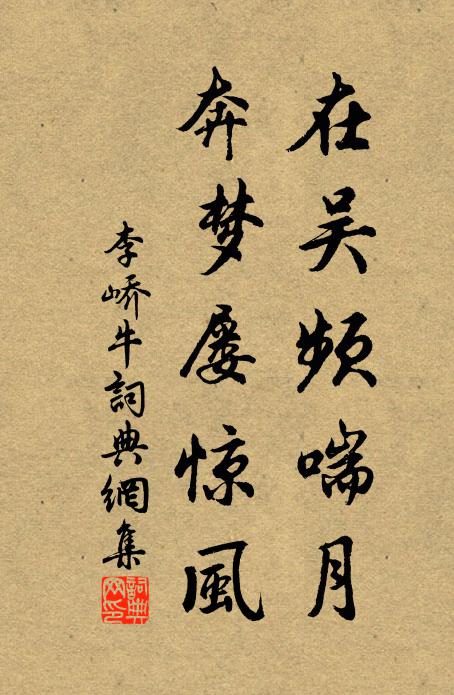 在吴频喘月
奔梦屡惊風
李峤牛詞典網集
詞典网印